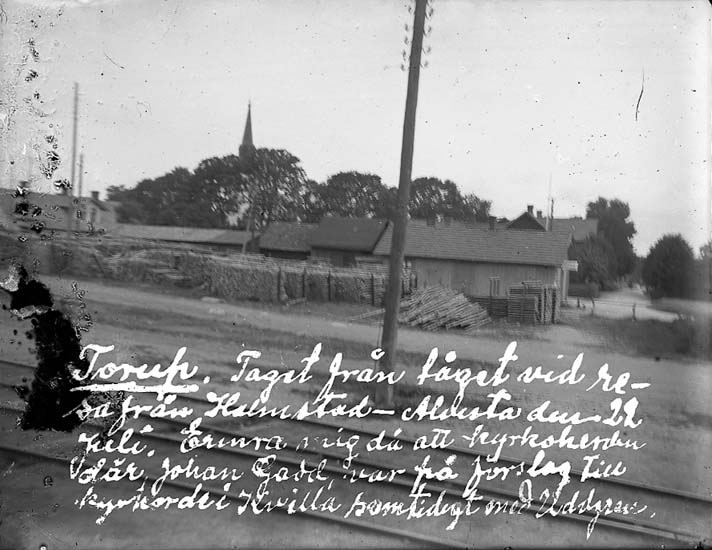 Torup. Taget från tåget vid re-
sa från Halmstad – Alvesta den 22
juli. Erinra mig då att kyrkoherden
där, Johan Gadd, var på förslag till
kyrkorde i Kvilla samtidigt med Uddgren.